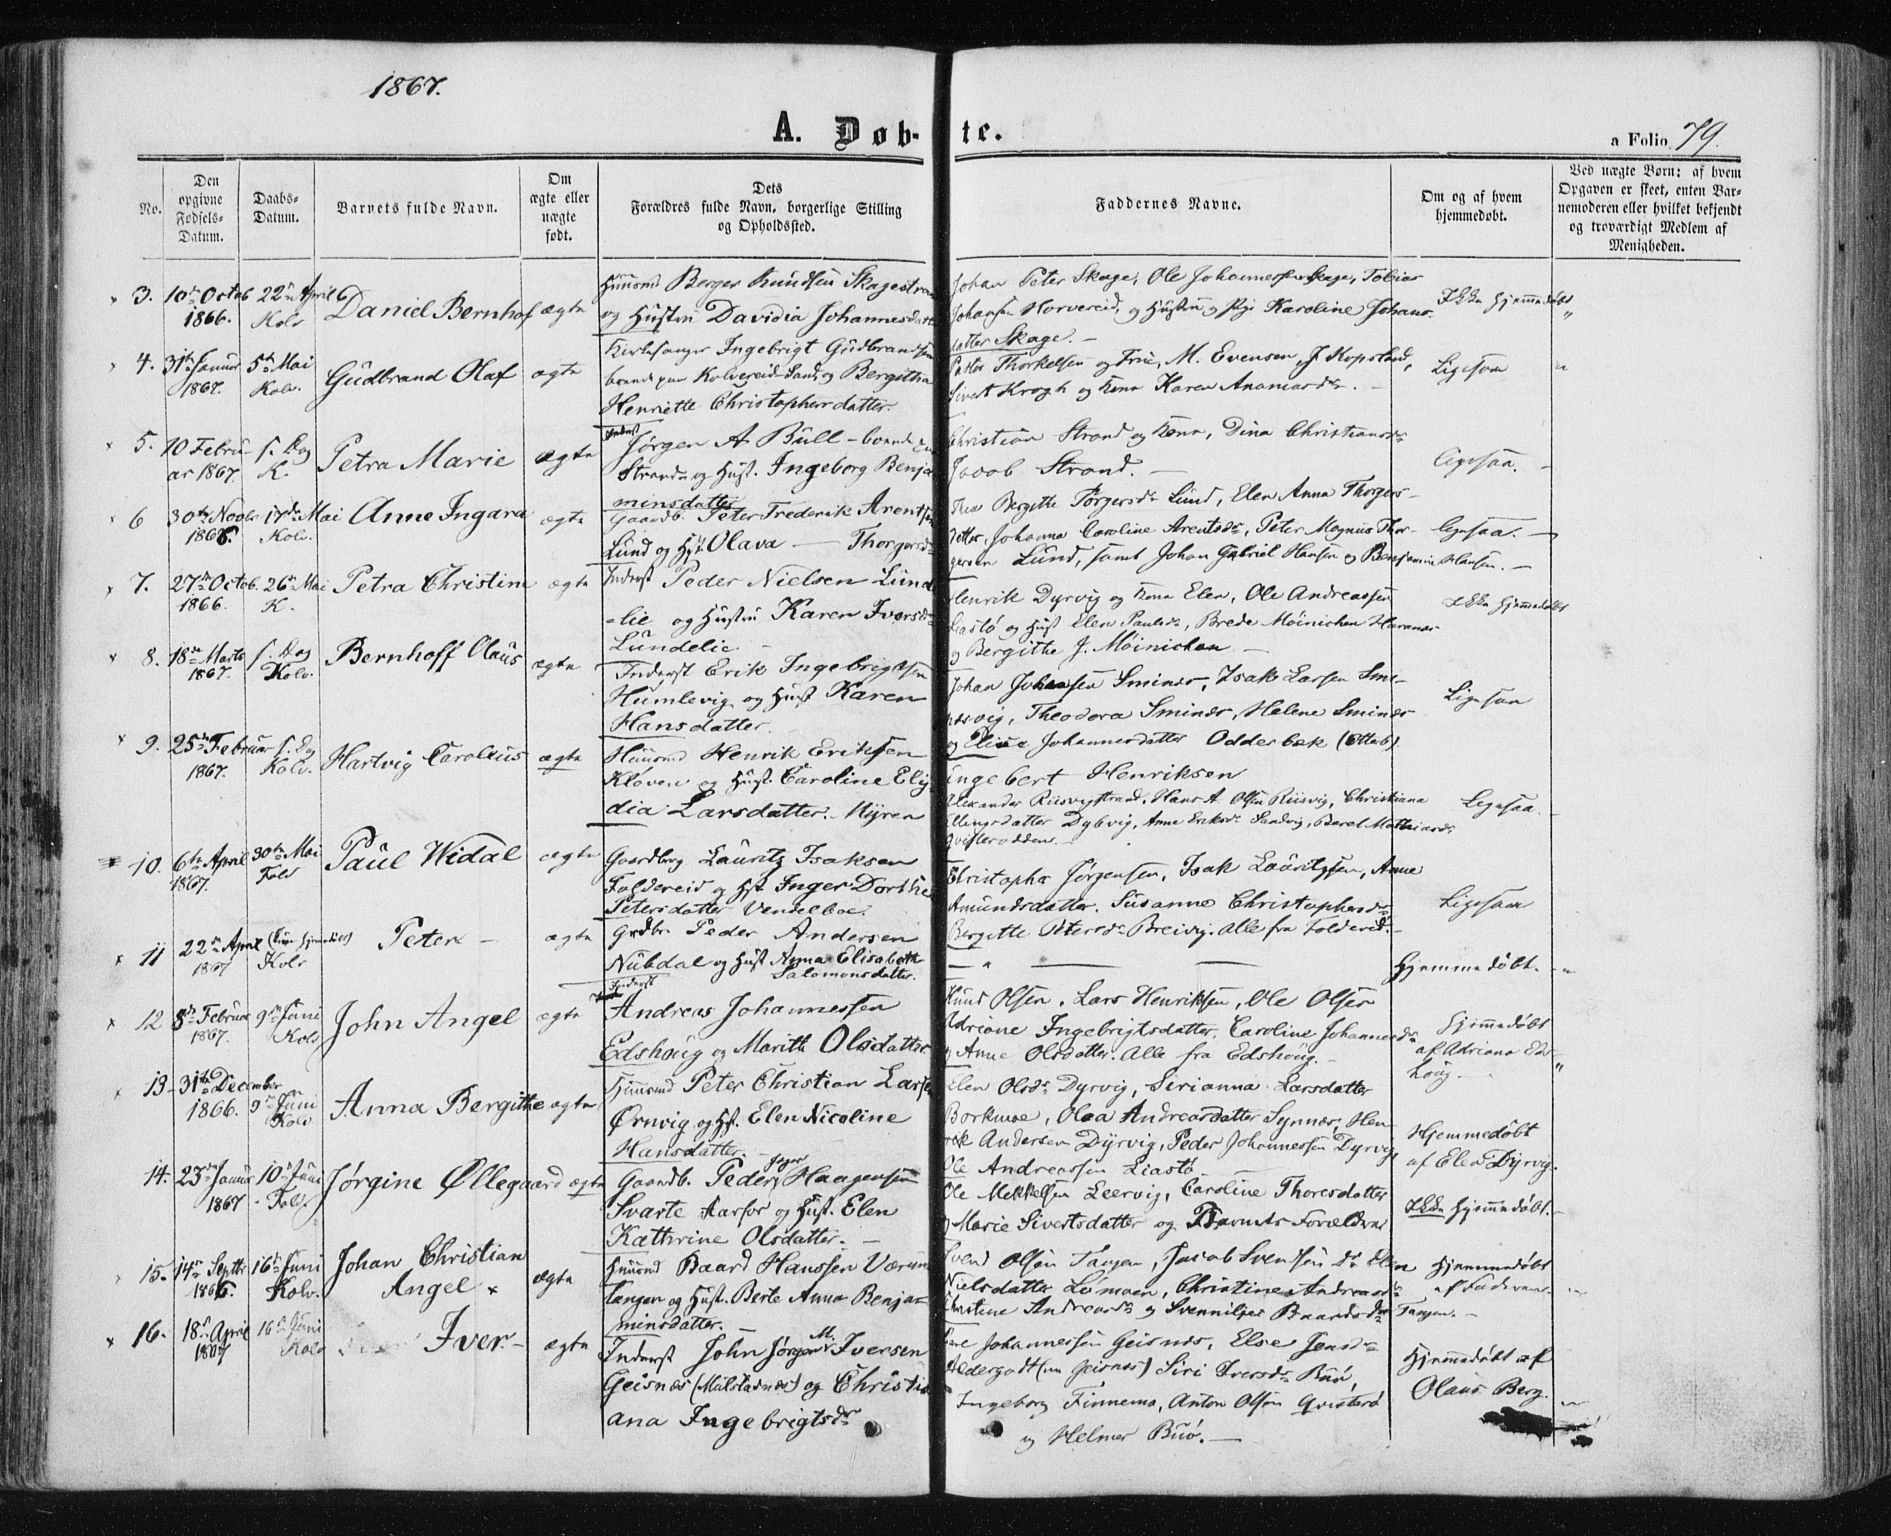 1867.
A. Døb- te.
a Folio 79.
No.
Den opgivne Fødsels-Datum.
Daabs-Datum.
Barnets fulde Navn.
Om ægte eller uægte født.
Dets Forældres fulde Navn, borgerlige Stilling og Opholdssted.
Faddernes Navne.
Om og af hvem hjemmedøbt.
Ved uægte Børn: af hvem Opgaven er skeet, enten Barnemoderen eller hvilket bekjendt og troværdigt Medlem af Menigheden.
3. 10de Octob 1866. 22de April Kolv Daniel Bernhof ægte
Huusmd Berger Knudsen Skagestrand
og Hustru Davidia Johannesdatter
Johan Peter Skage, Ole Johannessen Skage, Tobias
Johansen Horvereid, og Hustru og Pige Karoline Johans-
datter Skage. -
Ikke hjemmedøbt "
4. 31te Januar 1867. 5te Mai Kolv. Gudbrand Olaf ægte
Kirkesanger Ingebrigt Gudbrandsen
boende paa Kolvereid Land, og Bergitha
Henriette Christophersdatter.
Pastor Thorkelsen og Frue, M. Evensen, J. Kopsland,
Sivert Krogh og Kone Karen Anamarda. -
Ligesom "
5. 10 Februar 1867. s. Dag K. Petra Marie ægte
Inderst Jørgen A Bull - boende paa
Strand og Hust. Ingeborg Benja
minsdatter
Christian Strand og Kone, Dina Christiansdr
Jacob Strand. -
Ligesaa. -
6 30te Novbr 1866. 17de Mai Kolv. Anne Ingara ægte
Gaardb. Peter Frederik Arentsen
Lund og Hst. Olava - Thorgersdr
Bergitte Törgersdr Lund, Elen Anna Thorgers-
datter, Johanna Caroline Arentsdr, Peter Magnus Thor-
gersen Lund, samt Johan Gabriel Hansen og Benjamine Hansen. -
Ligesaa. -
7. 27de Octob. 1866. 26de Mai K. Petra Christine ægte
Inderst Peder Nielsen Lund
-lie og Hustru Karen Iversdr
Lundelie -
Henrik Dyrvig og Kone Elen, Ole Andreassen
Liastø og Hust Elen Paulsdr, Brede Möinichen Haramær
og Bergithe J. Möinichen -
Ikke hjemmedøbt
8. 18de Marts 1867. s. Dag Kolv. Bernhoff Olaus ægte
Inderst Erik Ingebrigtsen
Humlevig og Hust Karen
Hansdatter.
Johan Johansen Sminær, Isak Larsen Smi-
nærvig, Theodora Sminær, Helene Sminær
og Elise Johannesdatter Odderbæk (Otterb)
Ligesaa
9. 25de Februar 1867. s. Dag Kolv. Hartvig Carolius ægte
Huusmd Henrik Eriksen
Kloven og Hust. Caroline Ely-
dia Larsdatter. Myren
Ingebert Henriksen
Alexander Riisvigstrand, Hans A. Olsen Riisvig, Christiana
Ellingsdatter Dybvig, Anne Eriksdr Sandvig, Berel Mathiasdr
Qvisterodden.
Ligesaa
10. 6te April 1867. 30te Mai Fold Paul Widal ægte
Gaardbrg Lauritz Isaksen
Foldereid og Hst Inger Dorthe
Petersdatter Vendelboe.
Christopher Jørgensen, Isak Lauritzsen, Anne
Amundsdatter. Susanne Christophersdr.
Bergitte Petersdr Breivig. Alle fra Foldereid. -
Ligesom
11 22de April 1867 Kolv Peter - ægte
Grdbr Peder Andersen
Nubdal og Hust Anna Elisabeth
Salomonsdatter.
Hjemmedøbt. - "
12 8de Februar 1867. 9de Juni Kolv John Angel ægte
Inderst
Andreas Johannessen
Edshoug og Marith Olsdatter
Knud Olsen, Lars Henriksen, Ole Olsen
Adriane Ingebrigtsdatter, Caroline Johannesdr
og Anne Olsdatter. Alle fra Edshoug. -
Hjemmedøbt af Adriana Eds-
houg -
13- 31te December 1866. 9de Juni Kolv Anna Bergithe ægte
Huusmd Peter Christian Larsen
Ørnvig og Hst. Elen Nicoline
Hansdatter. -
Elen Olsdr Dyrvig, Sirianna Larsdatter
Borkmoe, Olaa Andreasdatter Synnær, Hen-
rik Andersen Dyrvig, Peder Johannessen Dyrvig,
Ole Andreassen Liastø
Hjemmedøbt
af Elen Dyrvig.
14. 23de Januar 1867 10de Juni Fold. Jørgine Øllegaard ægte
Gaardb. Peder Jager Haagensen
Svarte Aarsør og Hust. Elen
Kathrine Olsdatter. -
Ole Mekkelsen Leervig, Caroline Thoresdatter
og Marie Sivertsdatter og Barnets Forældre
Ikke Hjemmedøbt. -
15. 14de Septbr 1866. 16de Juni Kolv. Johan Christian Angel × ægte
Huusmd Baard Hanssen Værum
Tangen og Hust. Berte Anna Benja-
minsdatter. -
Svend Olsen Tangen, Jacob Svendsen dr Elen
Nielsdatter Lømoen, Christine Andreasdr
Christine Andreasdr og Svennilper Baardsdr Tangen. -
Hjemmedøbt
af Faderen
16. 18de April 1867 16de Juni Kolv Iver - ægte
Inderst John Jørgen M. Iversen
Geisnæs (Mulstadnæs) og Christi-
ana Ingebrigtsdr
Johannessen Geisnæs, Else Jensdr
Aldergodt (nu Geisnæs) Siri Iversdr Buö,
Ingeborg Finnemo, Anton Olsen Qvisterö
og Helmer Buö. -
Hjemmedøbt af
Olaus Berg.